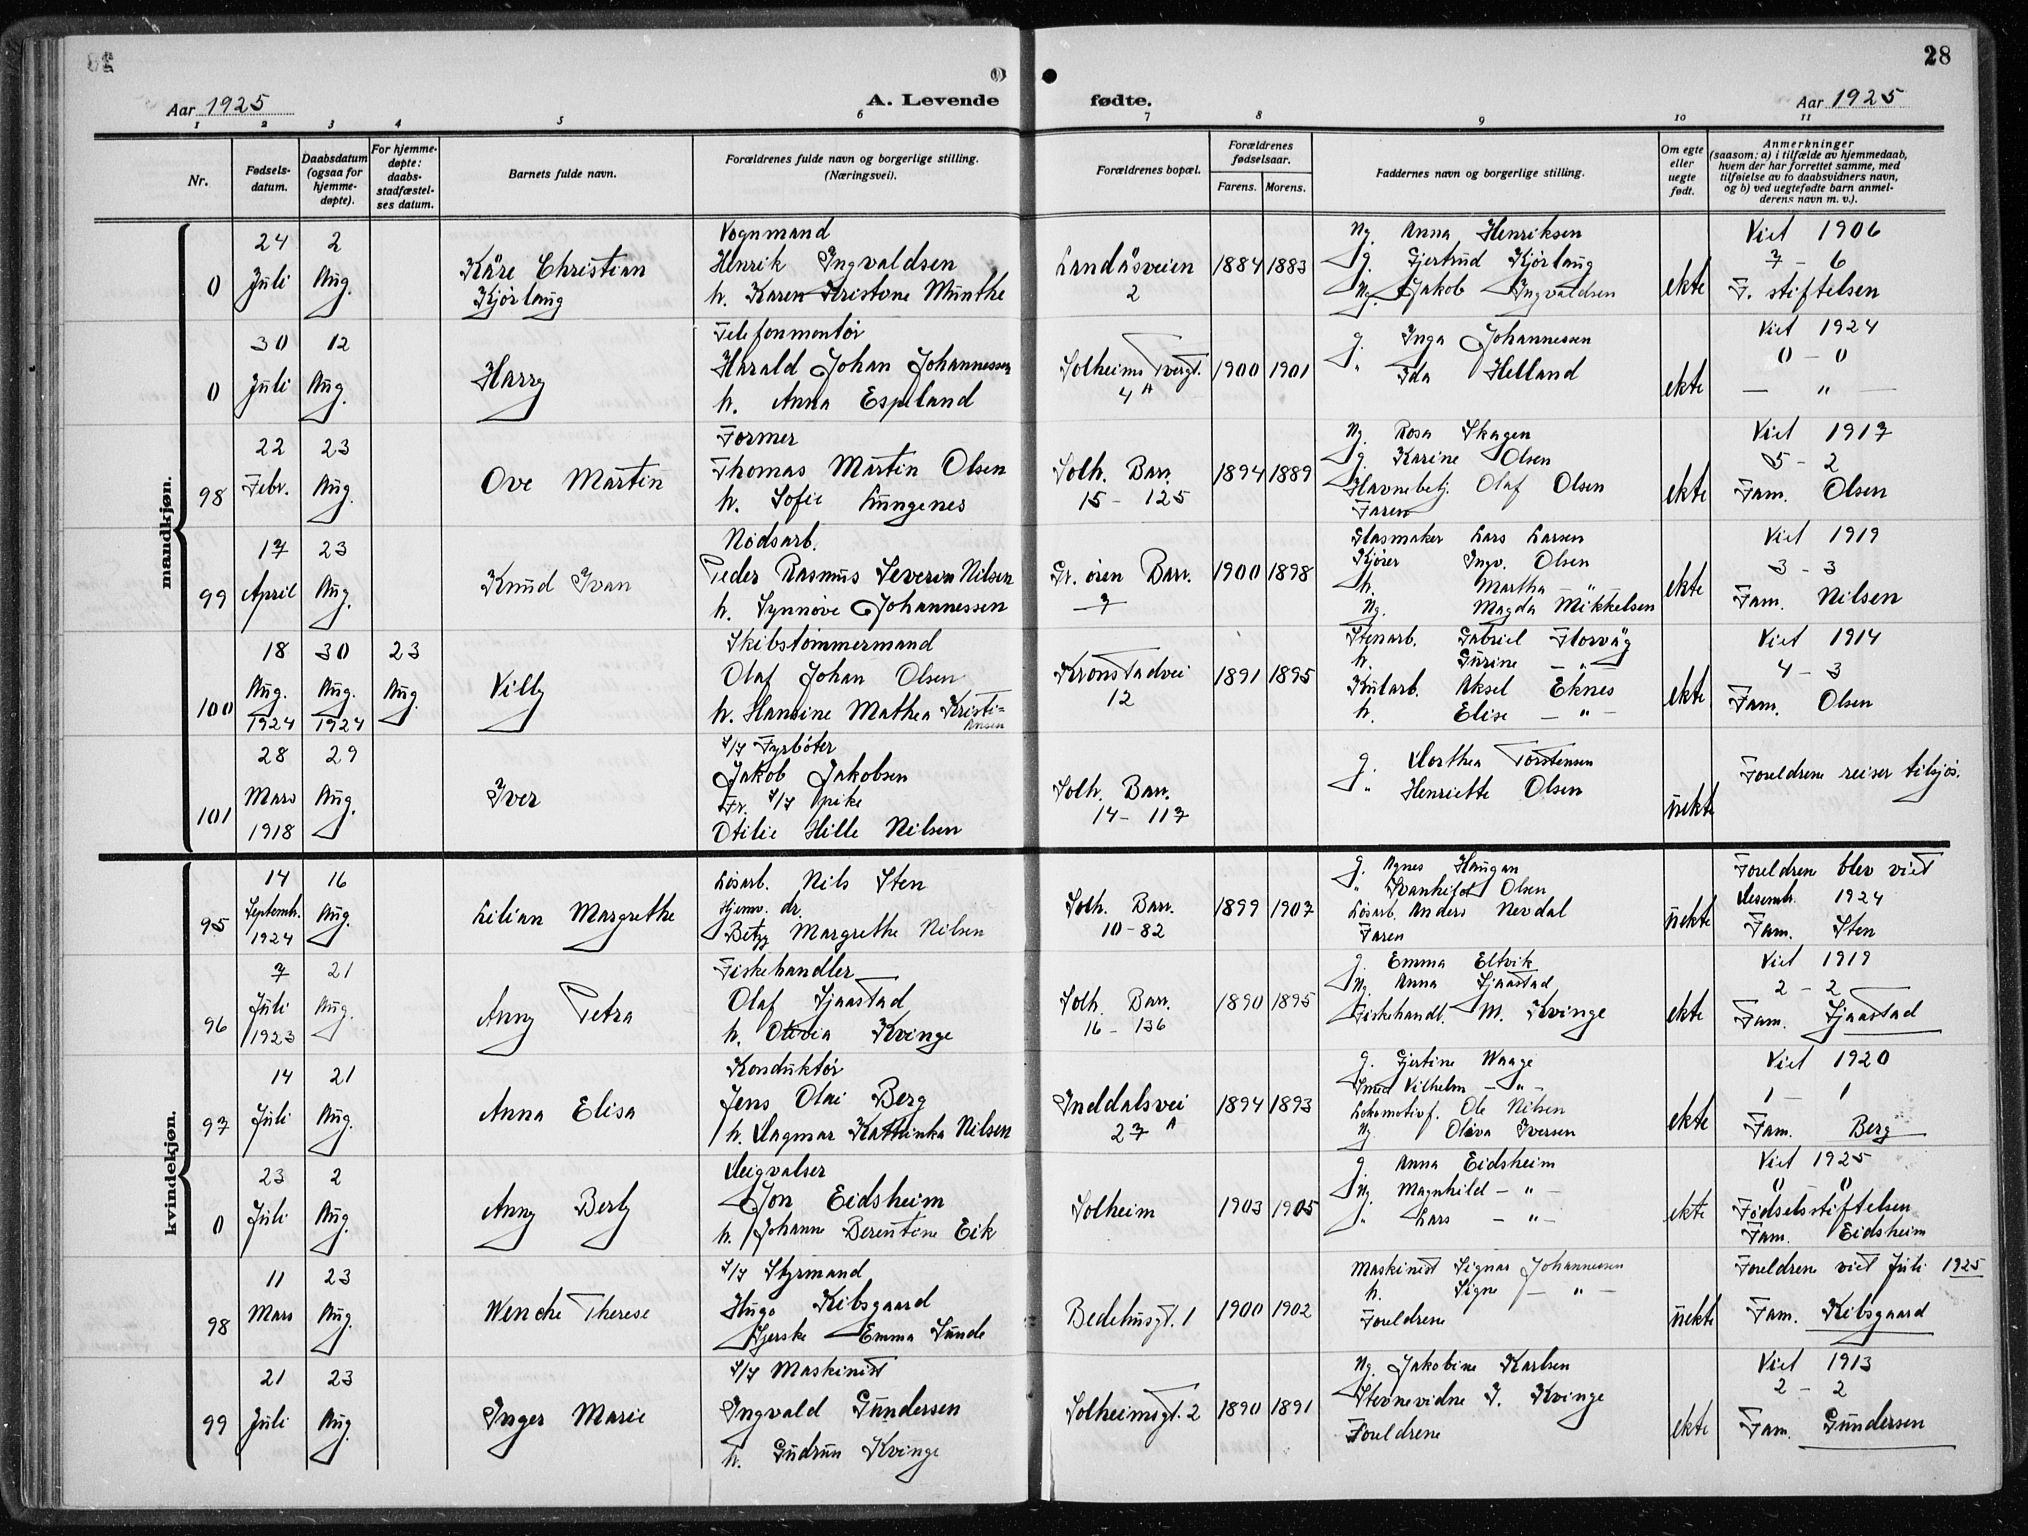 28
Aar 1925
A. Levende fødte.
Aar 1925
1 2 3 4 5 6 7 8 9 10 11
Nr.
Fødsels-
datum.
Daabsdatum
(ogsaa for
hjemme-
døpte).
For hjemme-
døpte:
daabs-
stadfæstel-
ses datum.
Barnets fulde navn.
Forældrenes fulde navn og borgerlige stilling.
(Næringsvei).
Forældrenes bopæl.
Forældrenes
fødselsaar.
Farens. Morens.
Faddernes navn og borgerlige stilling.
Om egte
eller
uegte
født.
Anmerkninger
(saasom: a) i tilfælde av hjemmedaab,
hvem der har forrettet samme, med
tilføielse av to daabsvidners navn,
og b) ved uegtefødte barn anmel-
derens navn m. v.).
mandkjøn.
0
24
Juli
2
Aug.
Kåre Christian
Kjørlaug
Vognmand
Henrik Ingvaldsen
h. Karen Kristine Munthe
Landåsveien
2
1884 1883
Ug. Anna Henriksen
g. Gjertrud Kjørlaug
Ug. Jakob Ingvaldsen
ekte
Viet 1906
7 - 6
F. stiftelsen
0
30
Juli
12
Aug.
Harry
Telefonmontør
Harald Johan Johannessen
h. Anna Espeland
Solheims Tvergt.
4 A
1900 1901
g. Inga Johannessen
" Ida Helland
ekte
Viet 1924
0 - 0
— " —
98
22
Febr.
23
Aug.
Ove Martin
Former
Thomas Martin Olsen
h. Sofie Lungenes
Solh. Barr.
15 - 125
1894 1889
Ug. Rosa Skagen
g. Karine Olsen
Havnebetj. Olaf Olsen
Faren
ekte
Viet 1917
5 - 2
Fam. Olsen
99
17
April
23
Aug.
Knud Ivan
Nødsarb.
Peder Rasmus Severin Nilsen
h. Synnøve Johannessen
St. øren Barr.
7
1900 1898
Glasmaker Lars Larsen
Kjører Ingv. Olsen
h. Martha — " —
Ug. Magda Mikkelsen
ekte
Viet 1919
3 - 3
Fam. Nilsen
100
18
Aug.
1924
30
Aug.
1924
23
Aug.
Villy
Skibstømmermand
Olaf Johan Olsen
h. Hansine Mathea Kristi=
ansen
Kronstadvei
12
1891 1895
Stenarb. Gabriel Florvåg
h. Gurine — " —
Kularb. Aksel Eknes
h. Elise — " —
ekte
Viet 1914
4 - 3
Fam. Olsen
101
28
Mars
1918
29
Aug.
Iver
S/S Fyrbøter
Jakob Jakobsen
Fr. S/S pike
Otilie Hille Nilsen
Solh. Barr.
14 - 117
g. Dorthea Torstensen
" Henriette Olsen
uekte
Foreldrene reiser tilsjøs.
kvindekjøn.
95
14
Septemb.
1924
16
Aug.
Lilian Margrethe
Løsarb. Nils Sten
Hjemv. dr.
Betzy Margrethe Nilsen
Solh. Barr.
10 - 82
1899 1907
g. Agnes Haugan
" Svanhild Olsen
Løsarb. Anders Nevdal
Faren
uekte
Foreldrene blev viet
desemb. 1924
Fam. Sten
96
7
Juli
1923
21
Aug.
Anny Petra
Fiskehandler
Olaf Sjaastad
h. Olivia Kvinge
Solh. Barr.
16 - 136
1890 1895
g. Emma Eltvik
Ug. Anna Sjaastad
Fiskehandl. M. Kvinge
ekte
Viet 1919
2 - 2
Fam. Sjaastad
97
14
Juli
21
Aug.
Anna Elisa
Konduktør
Jens Olai Berg
h. Dagmar Kathinka Nilsen
Inddalsvei
27 A
1894 1893
g. Gjertine Waage
Smed Vilhelm — " —
Lokomotivf. Ole Nilsen
Ug. Oliva Iversen
ekte
Viet 1920
1 — 1
Fam. Berg
0
23
Juli
2
Aug.
Anny Berly
Deigvalser
Jon Eidsheim
h. Johanne Berentine Eik
Solheim
1903 1905
g. Anna Eidsheim
Ug. Magnhild — " —
" Lars — " —
ekte
Viet 1925
0 - 0
Fødselsstiftelsen
Fam. Eidsheim
98
11
Mars
23
Aug.
Wenche Therese
S/S Styrmand
Hugo Kibsgaard
Gjerske Emma Sunde
Bedehusgt. 1
1900 1902
Maskinist Signar Johannessen
h. Signe — " —
Foreldrene
uekte
Foreldrene viet Juli 1925
Fam. Kibsgaard
99
21
Juli
23
Aug.
Inger Marie
S/S Maskinist
Ingvald Gundersen
h. Gudrun Kvinge
Solheimsgt. 2
1890 1891
Ug. Jakobine Karlsen
Stevnevidne J. Kvinge
Foreldrene
ekte
Viet 1913
2 - 2
Fam. Gundersen